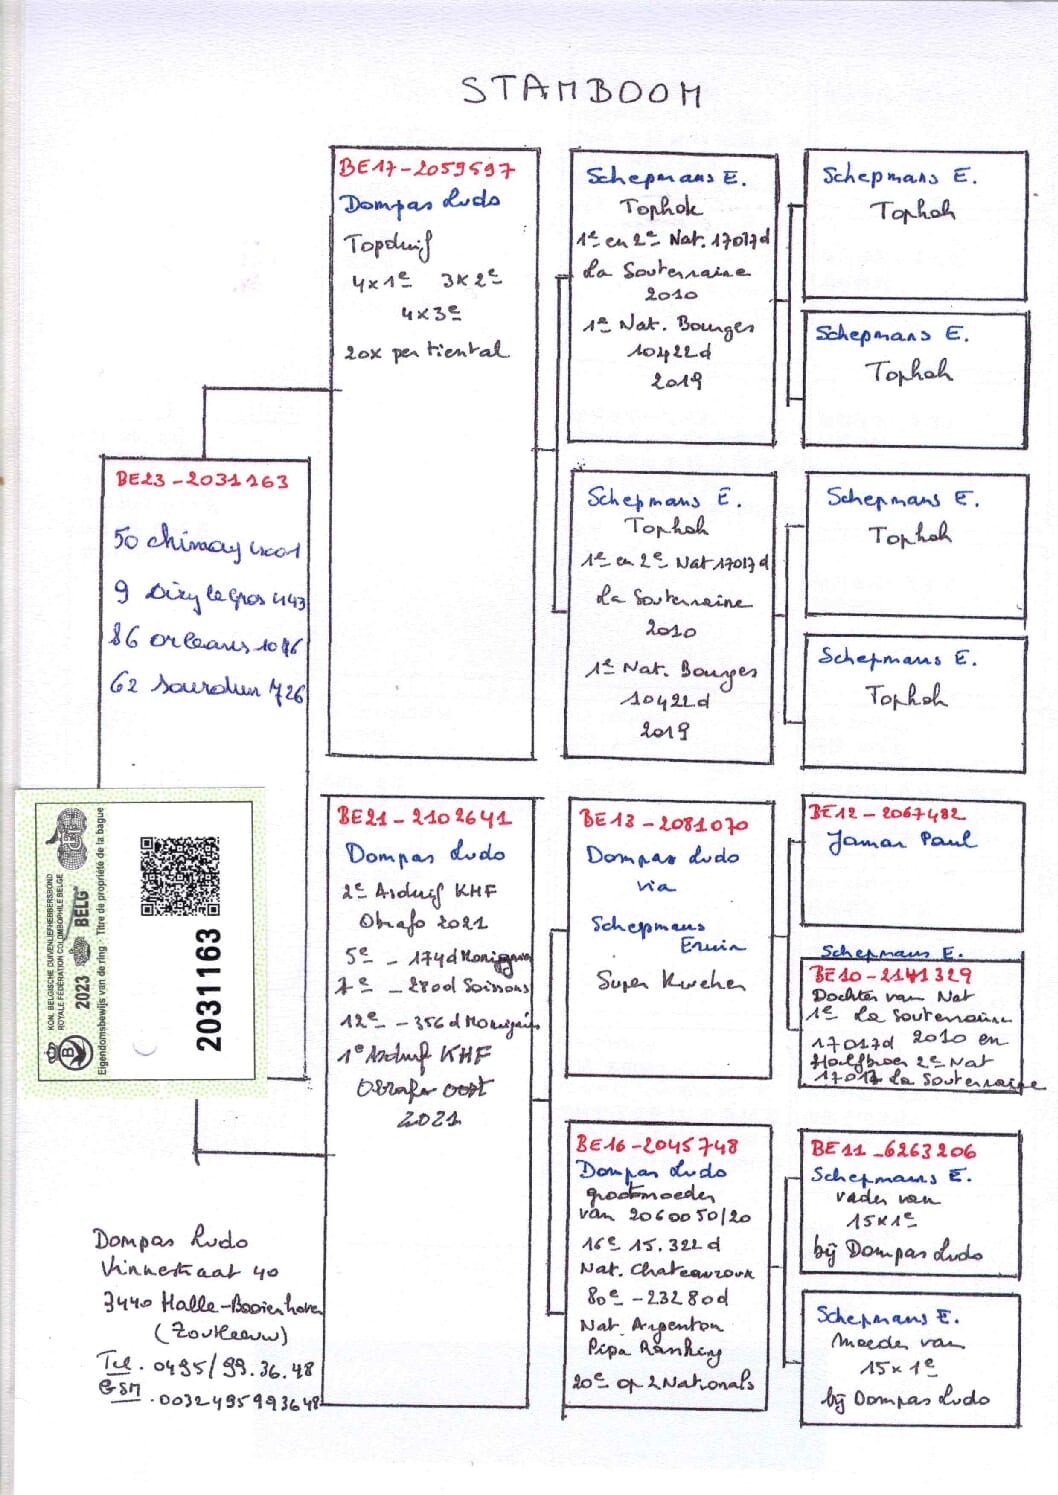 STAMBOOM
BE23-2031163
50 chimay 1001
9 Dizy le Gros 443
86 orleans
62 Sourdun 726
KON. BELGISCHE DUIVENLIEFHEBBERSBOND
ROYALE FÉDÉRATION COLOMBOPHILE BELGE
2023 BELG
Eigendomsbewijs van de ring - Titre de propriété de la bague
2031163
Dompas Ludo
Vinnestraat 40
3440 Halle-Booienhoven
(Zoutleeuw)
Tel. 0495/99.36.48
GSM . 0032495993648
BE17-2059597
Dompas Ludo
Topduif
4x1e 3x2e
4x3e
20x per tiental
BE21-2102641
Dompas Ludo
2e Asduif KHF
Obrafo 2021
5e - 174d Momignies
7e - 280d Soissons
12e - 356d Momignies
1e Asduif KHF
Obrafo Oost
2021
Schepmans E.
Tophok
1e en 2e Nat. 17017d
La Souterraine
2010
1e Nat. Bourges
10422d
2019
Schepmans E.
Tophok
1e en 2e Nat 17017d
La Souterraine
2010
1e Nat. Bourges
10422d
2019
BE13-2081070
Dompas Ludo
via
Schepmans
Erwin
Super Kweker
BE16-2045748
Dompas Ludo
grootmoeder
van 2060050/20
16e 15.322d
Nat. Chateauroux
80e - 23280d
Nat. Argenton
Pipa Ranking
20e op 2 Nationals
Schepmans E.
Tophok
Schepmans E.
Tophok
Schepmans E.
Tophok
Schepmans E.
Tophok
BE12-2067482
Jamar Paul
Schepmans E.
BE10-2141329
Dochter van Nat
1e La Souterraine
17017d 2010 en
Halfbroer 2e Nat
17017 La Souterraine
BE11-6263206
Schepmans E.
vader van
15x1e
bij Dompas Ludo
Schepmans E.
moeder van
15x1e
bij Dompas Ludo